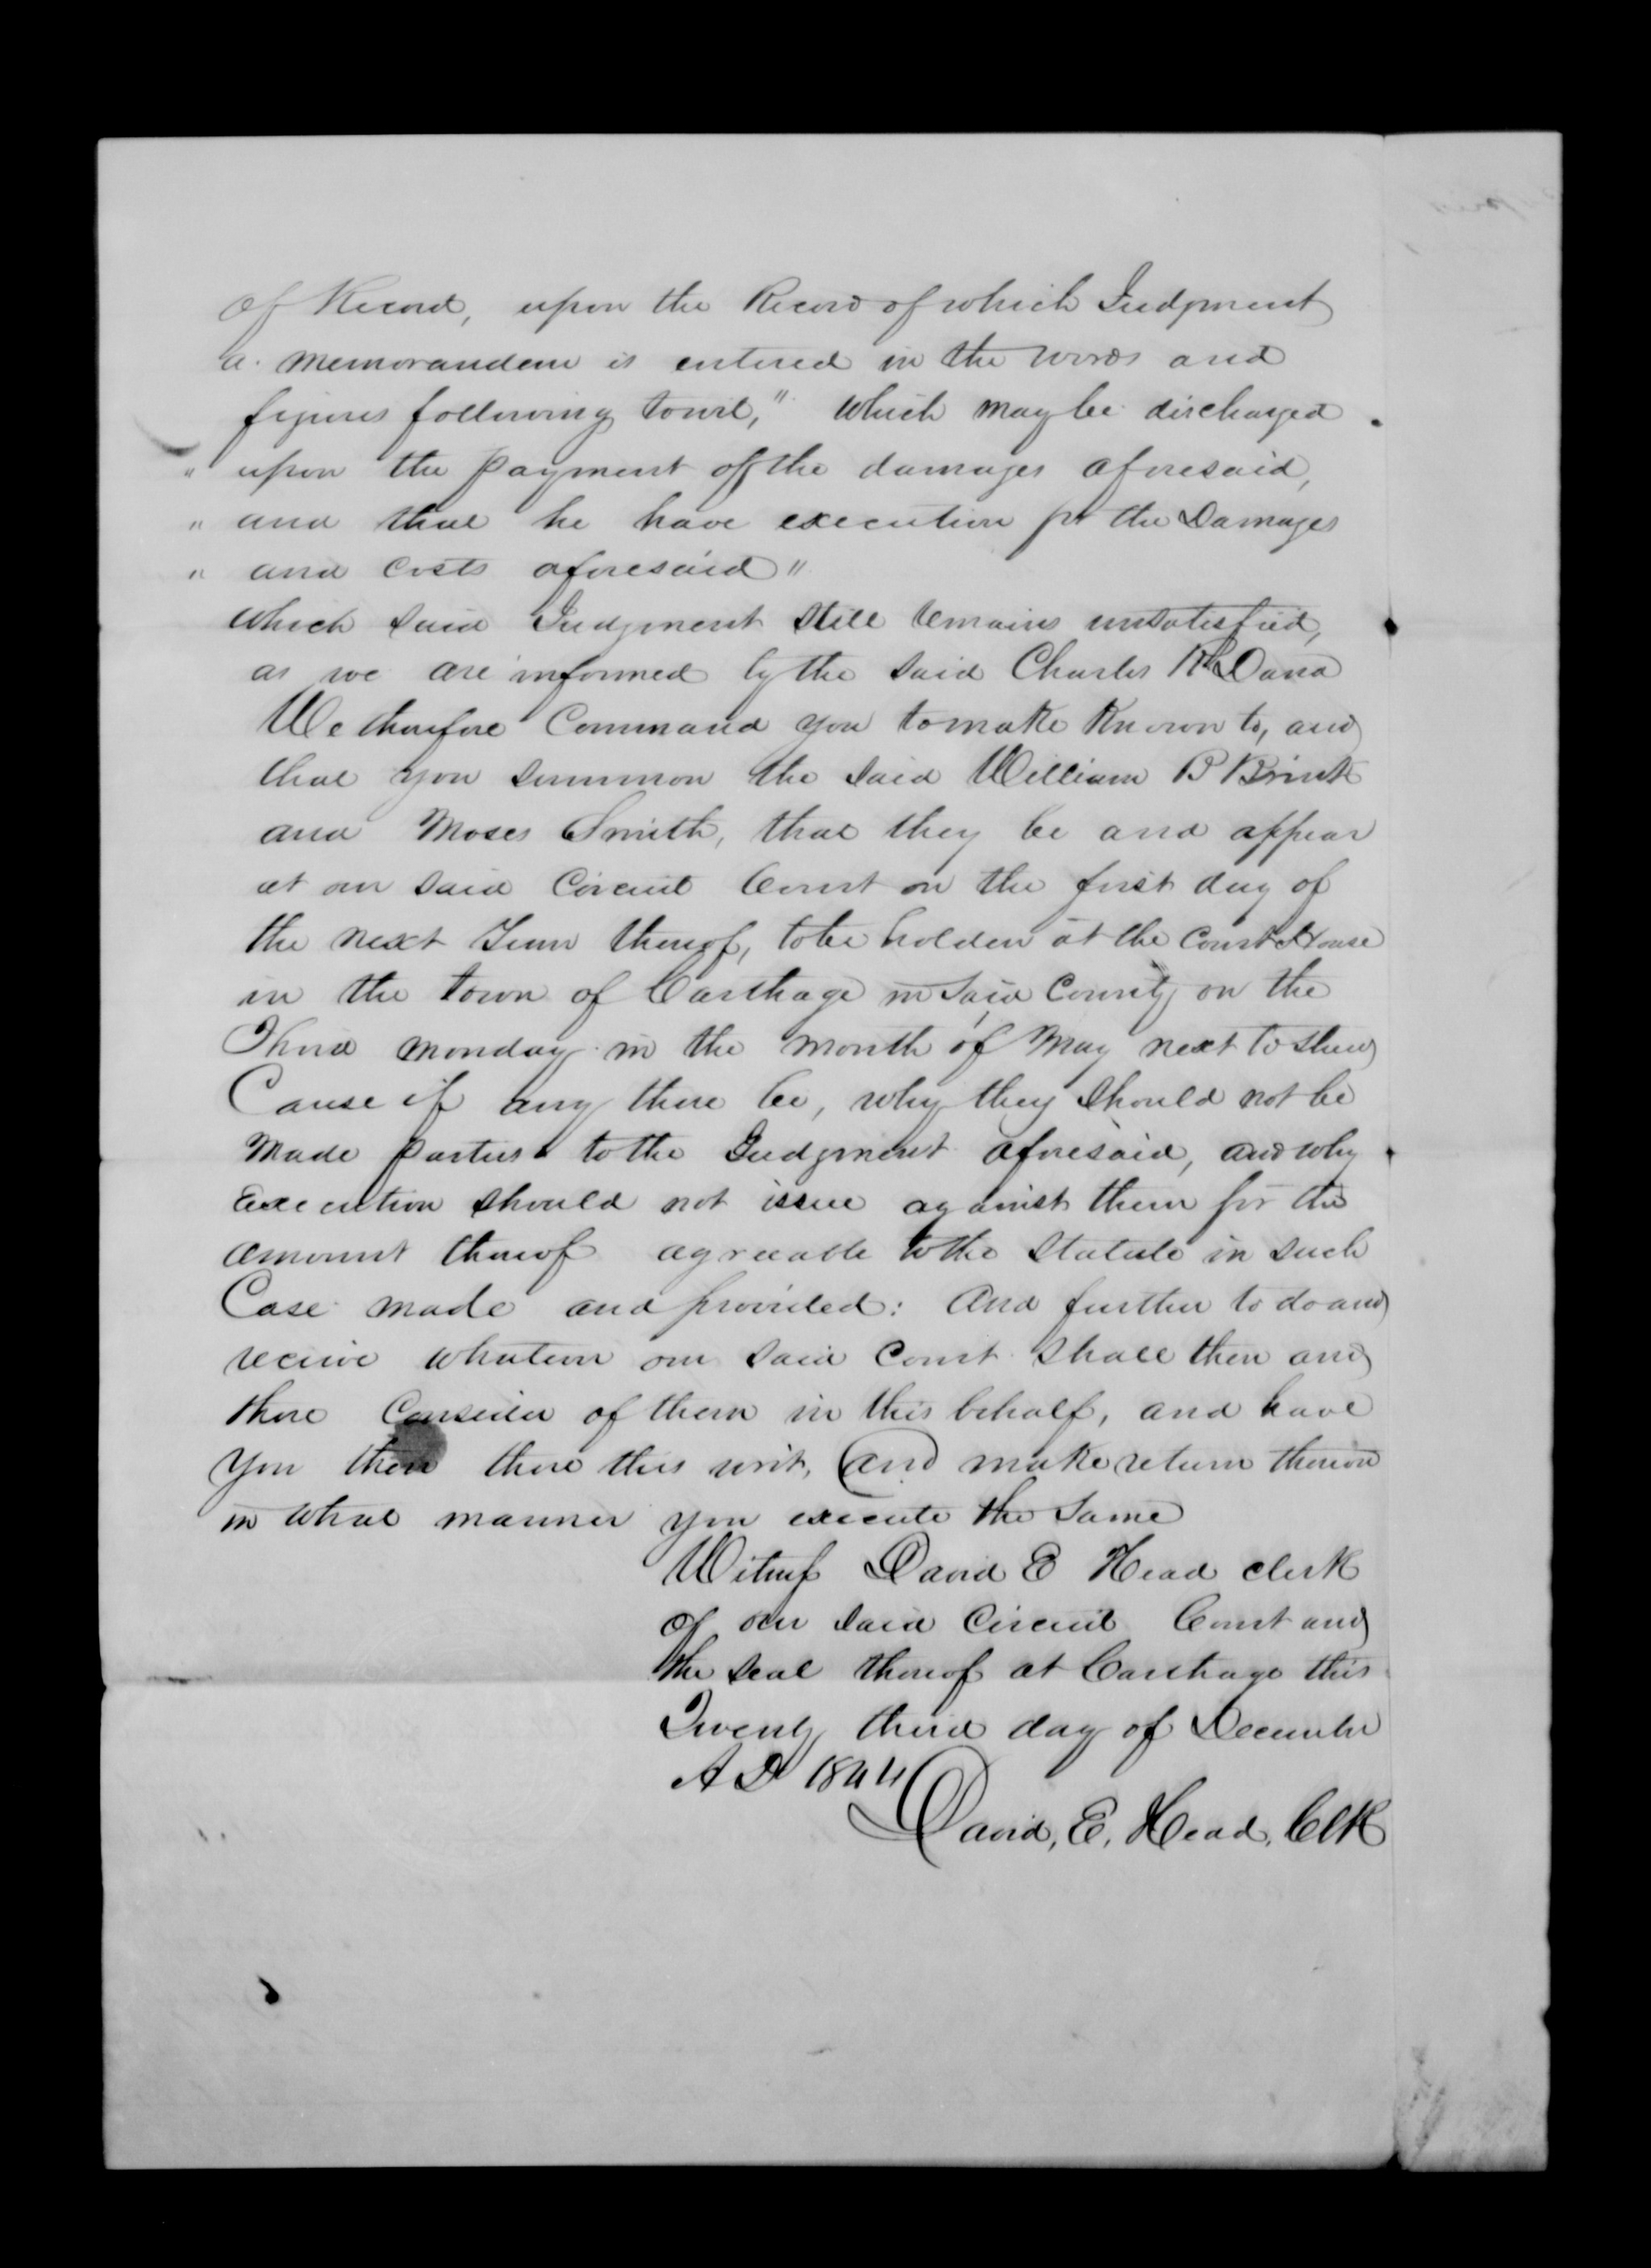 of Record, upon the Record of which Judgment
a memorandum is entered in the words and
figures following towit, " which may be discharged
" upon the payment of the damages aforesaid,
" and that he have execution for the Damages
" and costs aforesaid "
which said Judgment still remains unsatisfied,
as we are informed by the said Charles R Dana
We therefore Command you to make Known to, and
that you summon the said William B Brink
and Moses Smith, that they be and appear
at our said Circuit Court on the first day of
the next Term thereof, to be holden at the Court House
in the town of Carthage in said County on the
Third monday in the month of May next to shew
Cause if any there be, why they should not be
made parties to the Judgment aforesaid, and why
Execution should not issue against them for the
amount thereof agreeable to the statute in such
Case made and provided: And further to do and
receive whatever our said Court shall then and
there Consider of them in this behalf, and have
you then there this writ, and make return thereon
in what manner you execute the same
Witness David E Head clerk
of our said Circuit Court and
the seal thereof at Carthage this
Twenty third day of December
A D 1844
David, E, Head, Clk